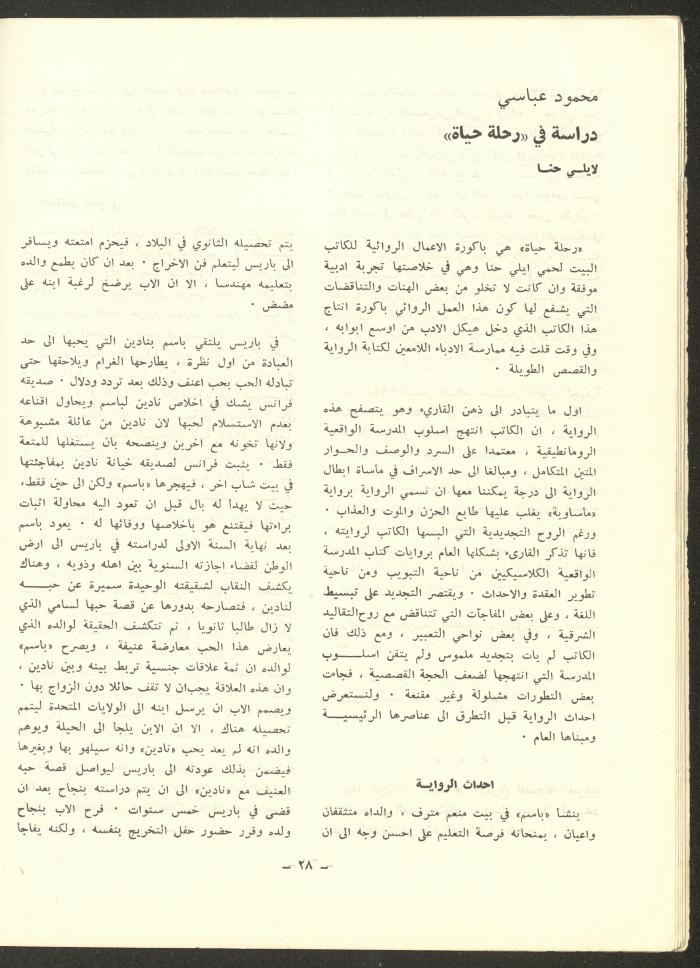 محمود عباسي
دراسة في «رحلة حياة»
لايلي حنا
«رحلة حياة» هي باكورة الاعمال الروائية للكاتب
البيت لحمي إيلي حنا وهي في خلاصتها تجربة ادبية
موفقة وان كانت لا تخلو من بعض الهنات والتناقضات
التي يشفع لها كون هذا العمل الروائي باكورة انتاج
هذا الكاتب الذي دخل هيكل الادب من اوسع ابوابه ،
وفي وقت قلت فيه ممارسة الادباء اللامعين لكتابة الرواية
والقصص الطويلة ٠
اول ما يتبادر الى ذهن القاريء وهو يتصفح هذه
الرواية ، ان الكاتب انتهج اسلوب المدرسة الواقعية
الرومانطيقية ، معتمدا على السرد والوصف والحوار
المتين المتكامل ، ومبالغا الى حد الاسراف في مأساة ابطال
الرواية الى درجة يمكننا معها ان نسمي الرواية برواية
«مأساوية» يغلب عليها طابع الحزن والموت والعذاب ٠
ورغم الروح التجديدية التي البسها الكاتب لروايته ،
فانها تذكر القارىء بشكلها العام بروايات كتاب المدرسة
الواقعية الكلاسيكيين من ناحية التبويب ومن ناحية
تطوير العقدة والاحداث ٠ ويقتصر التجديد على تبسيط
اللغة ، وعلى بعض المفاجآت التي تتناقض مع روح التقاليد
الشرقية ، وفي بعض نواحي التعبير ، ومع ذلك فان
الكاتب لم يات بتجديد ملموس ولم يتقن اسلـــوب
المدرسة التي انتهجها لضعف الحجة القصصية ، فجاءت
بعض التطورات مشلولة وغير مقنعة ٠ ولنستعرض
احداث الرواية قبل التطرق الى عناصرها الرئيسيـــة
ومبناها العام ٠
احداث الروايـة
ينشأ «باسم» في بيت منعم مترف ، والداه متثقفان
واعيان ، يمنحانه فرصة التعليم على احسن وجه الى ان
يتم تحصيله الثانوي في البلاد ، فيحزم امتعته ويسافر
الى باريس ليتعلم فن الاخراج ٠ بعد ان كان يطمع والده
بتعليمه مهندسا ، الا ان الاب يرضخ لرغبة ابنه على
مضض ٠
في باريس يلتقي باسم بنادين التي يحبها الى حد
العبادة من اول نظرة ، يطارحها الغرام ويلاحقها حتى
تبادله الحب بحب اعنف وذلك بعد تردد ودلال ٠ صديقه
فرانس يشك في اخلاص نادين لباسم ويحاول اقناعه
بعدم الاستسلام لحبها لان نادين من عائلة مشبوهة
ولانها تخونه مع اخرين وينصحه بان يستغلها للمتعة
فقط ٠ يثبت فرانس لصديقه خيانة نادين بمفاجئتها
في بيت شاب اخر ، فيهجرها «باسم» ولكن الى حين فقط،
حيث لا يهدأ له بال قبل ان تعود اليه محاولة اثبات
براءتها فيقتنع هو باخلاصها ووفائها له ٠ يعود باسم
بعد نهاية السنة الاولى لدراسته في باريس الى ارض
الوطن لقضاء اجازته السنوية بين اهله وذويه ، وهناك
يكشف النقاب لشقيقته الوحيدة سميرة عن حبـــه
لنادين ، فتصارحه بدورها عن قصة حبها لسامي الذي
لا زال طالبا ثانويا ، ثم تتكشف الحقيقة لوالده الذي
يعارض هذا الحب معارضة عنيفة ، ويصرح «باسم»
لوالده ان ثمة علاقات جنسية تربط بينه وبين نادين ،
وان هذه العلاقة يجب ان لا تقف حائلا دون الزواج بها ٠
ويصمم الاب ان يرسل ابنه الى الولايات المتحدة ليتمم
تحصيله هناك ، الا ان الابن يلجأ الى الحيلة ويوهم
والده انه لم يعد يحب «نادين» وانه سيلهو بها وبغيرها
فيضمن بذلك عودته الى باريس ليواصل قصة حبه
العنيف مع «نادين» الى ان يتم دراسته بنجاح بعد ان
قضى في باريس خمس سنوات ٠ فرح الاب بنجاح
ولده وقرر حضور حفل التخريج بنفسه ، ولكنه يفاجأ
– ٢٨ –